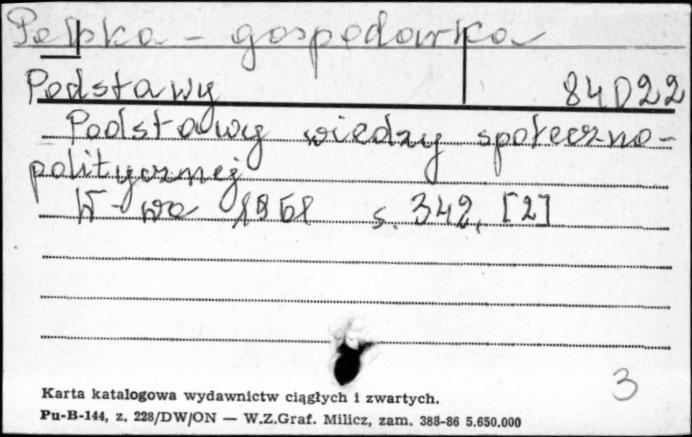 Polska - gospodarka
Podstawy 84D22
Podstawy wiedzy społeczno-
politycznej
W-wa 1961 s. 342, [2]
3
Karta katalogowa wydawnictw ciągłych i zwartych.
Pu-B-144, z. 228/DW/ON — W.Z.Graf. Milicz, zam. 388-86 5.650.000